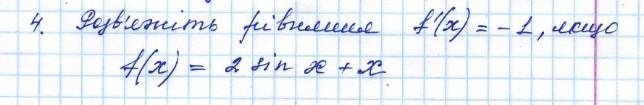 4. Розв'яжіть рівняння f'(x) = -1, якщо
f(x) = 2 sin x + x